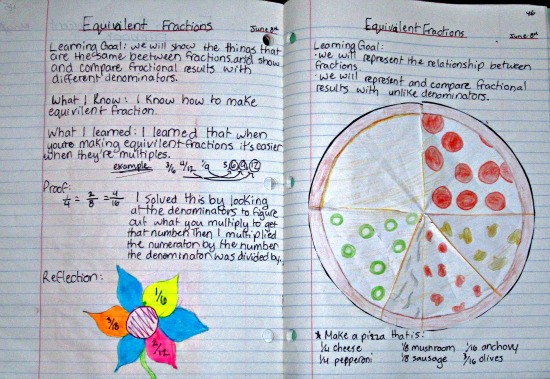 Equivalent Fractions
June 8th
Learning Goal: we will show the things that
are the same beetween fractions and show
and compare fractional results with
different denominators.
What I Know: I Know how to make
equivilent fraction.
What I learned: I learned that when
you're making equivilent fractions it's easier
when they're multiples.
example 3/6 4/12 1/9 3 6 9 12
Proof:
1/4 = 2/8 = 4/16
I solved this by looking
at the denominators to figure
out what you multiply to get
that number. Then I multiplied
the numerator by the number
the denominator was divided by.
Reflection:
1/6
3/18
2/12
46
Equivalent Fractions
June 8th
Learning Goal:
· We will represent the relationship between
fractions.
· We will represent and compare fractional
results with unlike denominators.
* Make a pizza that is:
1/4 cheese 1/8 mushroom 1/16 anchovy
1/4 pepperoni 1/8 sausage 3/16 olives